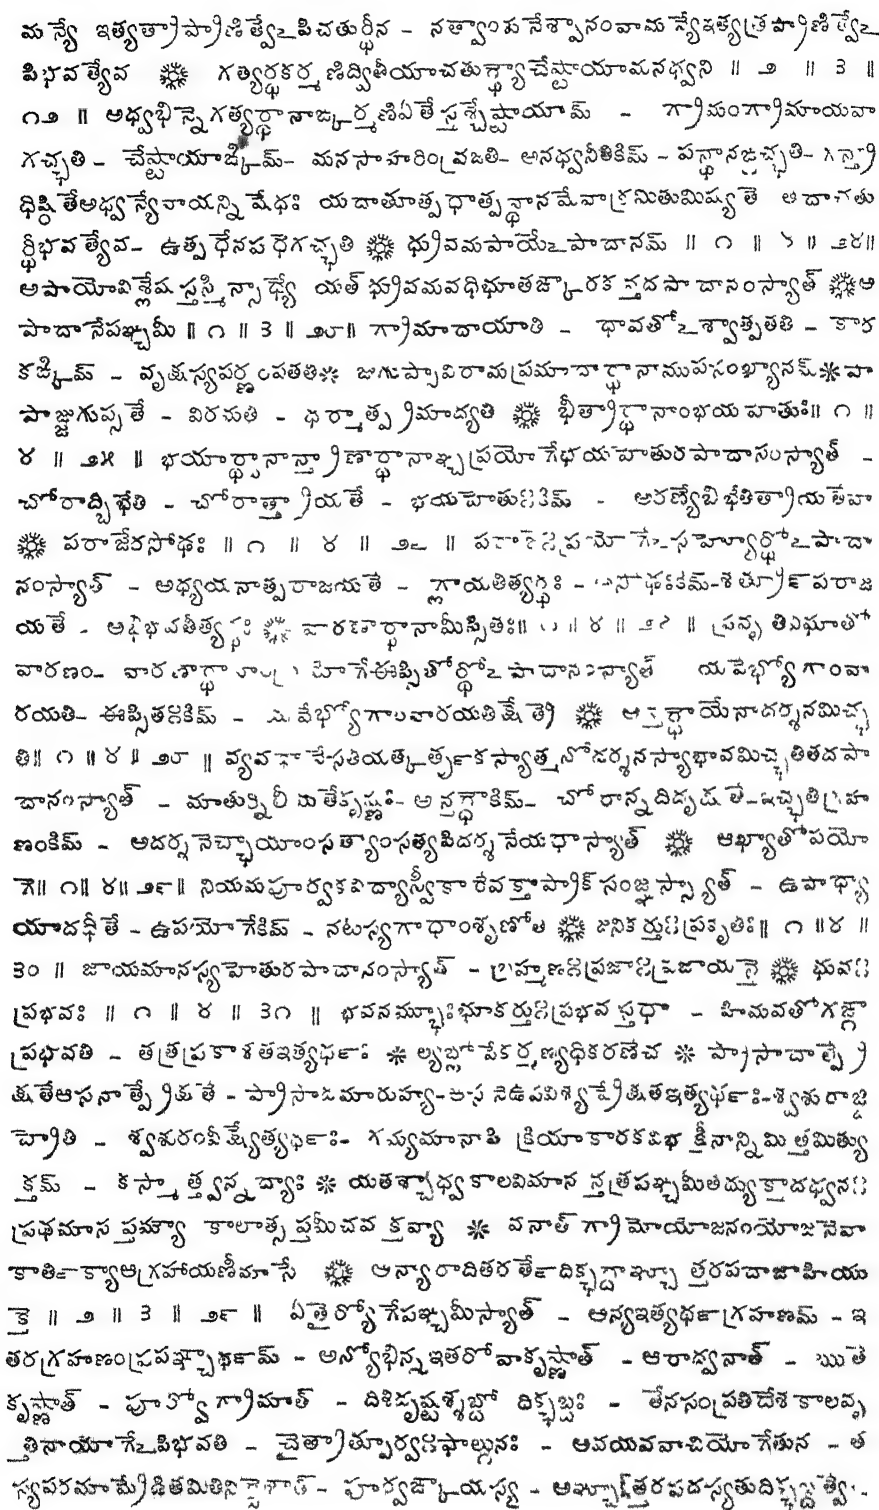 మన్యే ఇత్యత్రాప్రాణిత్వేఽపిచతుర్థీన - నత్వాంశునేశ్వానంవామన్యేఇత్యత్రప్రాణిత్వేఽ
పిభవత్యేవ ❋ గత్యర్థకర్మణిద్వితీయాచతుర్థ్యౌచేష్టాయామనధ్వని ॥ ౨ ॥ ౩ ॥
౧౨ ॥ అధ్వభిన్నెగత్యర్థానాఙ్కర్మణిఏతేస్తశ్చేష్టాయామ్ - గ్రామంగ్రామాయవా
గచ్ఛతి - చేష్టాయాఙ్కిమ్- మనసాహరింవ్రజతి- అనధ్వనీతికిమ్ - పన్థానఙ్గచ్ఛతి- గన్త్రా
ధిష్ఠితేఅధ్వన్యేవాయన్నిషేధః యదాతూత్పథాత్పన్థానమేవాక్రమితుమిష్యతే తదాచతు
ర్థీభవత్యేవ- ఉత్పథేనపథేగచ్ఛతి ❋ ధ్రువమపాయేఽపాదానమ్ ॥ ౧ ॥ ౪ ॥ ౨౪॥
అపాయోవిశ్లేషస్తస్మిన్సాధ్యే యత్ ధ్రువమవధిభూతఙ్కారకన్తదపాదానంస్యాత్ ❋అ
పాదానేపఞ్చమీ ॥ ౧ ॥ ౩ ॥ ౨౮॥ గ్రామాదాయాతి - ధావతోఽశ్వాత్పతతి - కార
కఙ్కిమ్ - వృక్షస్యపర్ణంపతతి❋ జుగుప్సావిరామప్రమాదార్థానాముపసంఖ్యానమ్❋పా
పాజ్జుగుప్సతే - విరమతి - ధర్మాత్ప్రమాద్యతి ❋ భీత్రార్థానాంభయహేతుః॥ ౧ ॥
౪ ॥ ౨౫ ॥ భయార్థానాన్త్రాణార్థానాఞ్చప్రయోగేభయహేతురపాదానంస్యాత్ -
చోరాద్బిభేతి - చోరాత్త్రాయతే - భయహేతుఃకిమ్ - అరణ్యేబిభేతిత్రాయతేవా
❋ పరాజేరసోఢః ॥ ౧ ॥ ౪ ॥ ౨౬ ॥ పరాజేఃప్రయోగేఽసహ్యోర్థోఽపాదా
నంస్యాత్ - అధ్యయనాత్పరాజయతే - గ్లాయతీత్యర్థః - అసోఢఃకిమ్-శత్రూన్పరాజ
యతే - అభిభవతీత్యర్థః ❋ వారణార్థానామీప్సితః॥ ౧ ॥ ౪ ॥ ౨౭ ॥ ప్రవృత్తివిఘాతో
వారణం- వారణార్థానాంప్రయోగేఈప్సితోర్థోఽపాదానంస్యాత్ యవేభ్యోగాంవా
రయతి- ఈప్సితఃకిమ్ - యవేభ్యోగాంవారయతిక్షేత్రే ❋ అన్తర్ధౌయేనాదర్శనమిచ్ఛ
తి॥ ౧ ॥ ౪ ॥ ౨౮ ॥ వ్యవధానేసతియత్కర్తృకస్యాత్మనోదర్శనస్యాభావమిచ్ఛతితదపా
దానంస్యాత్ - మాతుర్నిలీయతేకృష్ణః- అన్తర్ధౌకిమ్- చోరాన్నదిదృక్షతే-ఇచ్ఛతిగ్రహ
ణంకిమ్ - అదర్శనెచ్ఛాయాంసత్యాంసత్యపిదర్శనేయథాస్యాత్ ❋ ఆఖ్యాతోపయో
గే॥ ౧॥ ౪॥ ౨౯॥ నియమపూర్వకవిద్యాస్వీకారేవక్తాప్రాక్సంజ్ఞస్స్యాత్ - ఉపాధ్యా
యాదధీతే - ఉపయోగేకిమ్ - నటస్యగాథాంశృణోతి ❋ జనికర్తుఃప్రకృతిః॥ ౧ ॥౪ ॥
౩౦ ॥ జాయమానస్యహేతురపాదానంస్యాత్ - బ్రహ్మణఃప్రజాఃప్రజాయన్తే ❋ భువః
ప్రభవః ॥ ౧ ॥ ౪ ॥ ౩౧ ॥ భవనమ్భూఃభూకర్తుఃప్రభవస్తథా - హిమవతోగఙ్గా
ప్రభవతి - తత్రప్రకాశతఇత్యర్థః ❋ ల్యబ్లోపేకర్మణ్యధికరణేచ ❋ ప్రాసాదాత్ప్రే
క్షతేఆసనాత్ప్రేక్షతే - ప్రాసాదమారుహ్య-ఆసనెఉపవిశ్యప్రేక్షతఇత్యర్థః-శ్వశురాజ్జి
హ్రేతి - శ్వశురంవీక్ష్యేత్యర్థః- గమ్యమానాపి క్రియాకారకవిభక్తీనాన్నిమిత్తమిత్యు
క్తమ్ - కస్మాత్త్వన్నద్యాః ❋ యతశ్చాధ్వకాలవిమానన్తత్రపఞ్చమీతద్యుక్తాదధ్వనః
ప్రథమాసప్తమ్యౌ కాలాత్సప్తమీచవక్తవ్యా ❋ వనాత్ గ్రామోయోజనంయోజనేవా
కార్తిక్యాఆగ్రహాయణీమాసే ❋ అన్యారాదితరర్తేదిక్ఛబ్దాఞ్చూత్తరపదాజాహియు
క్తే ॥ ౨ ॥ ౩ ॥ ౨౯ ॥ ఏతైర్యోగేపఞ్చమీస్యాత్ - ఆన్యఇత్యర్థగ్రహణమ్ - ఇ
తరగ్రహణంప్రపఞ్చార్థమ్ - అన్యోభిన్నఇతరోవాకృష్ణాత్ - ఆరాద్వనాత్ - ఋతే
కృష్ణాత్ - పూర్వోగ్రామాత్ - దిశిదృష్టశ్శబ్దో దిక్ఛబ్దః - తేనసంప్రతిదేశకాలవృ
త్తినాయోగేఽపిభవతి - చైత్రాత్పూర్వఃఫాల్గునః - ఆవయవవాచియోగేతున - త
స్యపరమామ్రేడితమితినిర్దేశాత్- పూర్వఙ్కాయస్య - అఞ్చూత్తరపదస్యతుదిక్ఛబ్దత్వే-